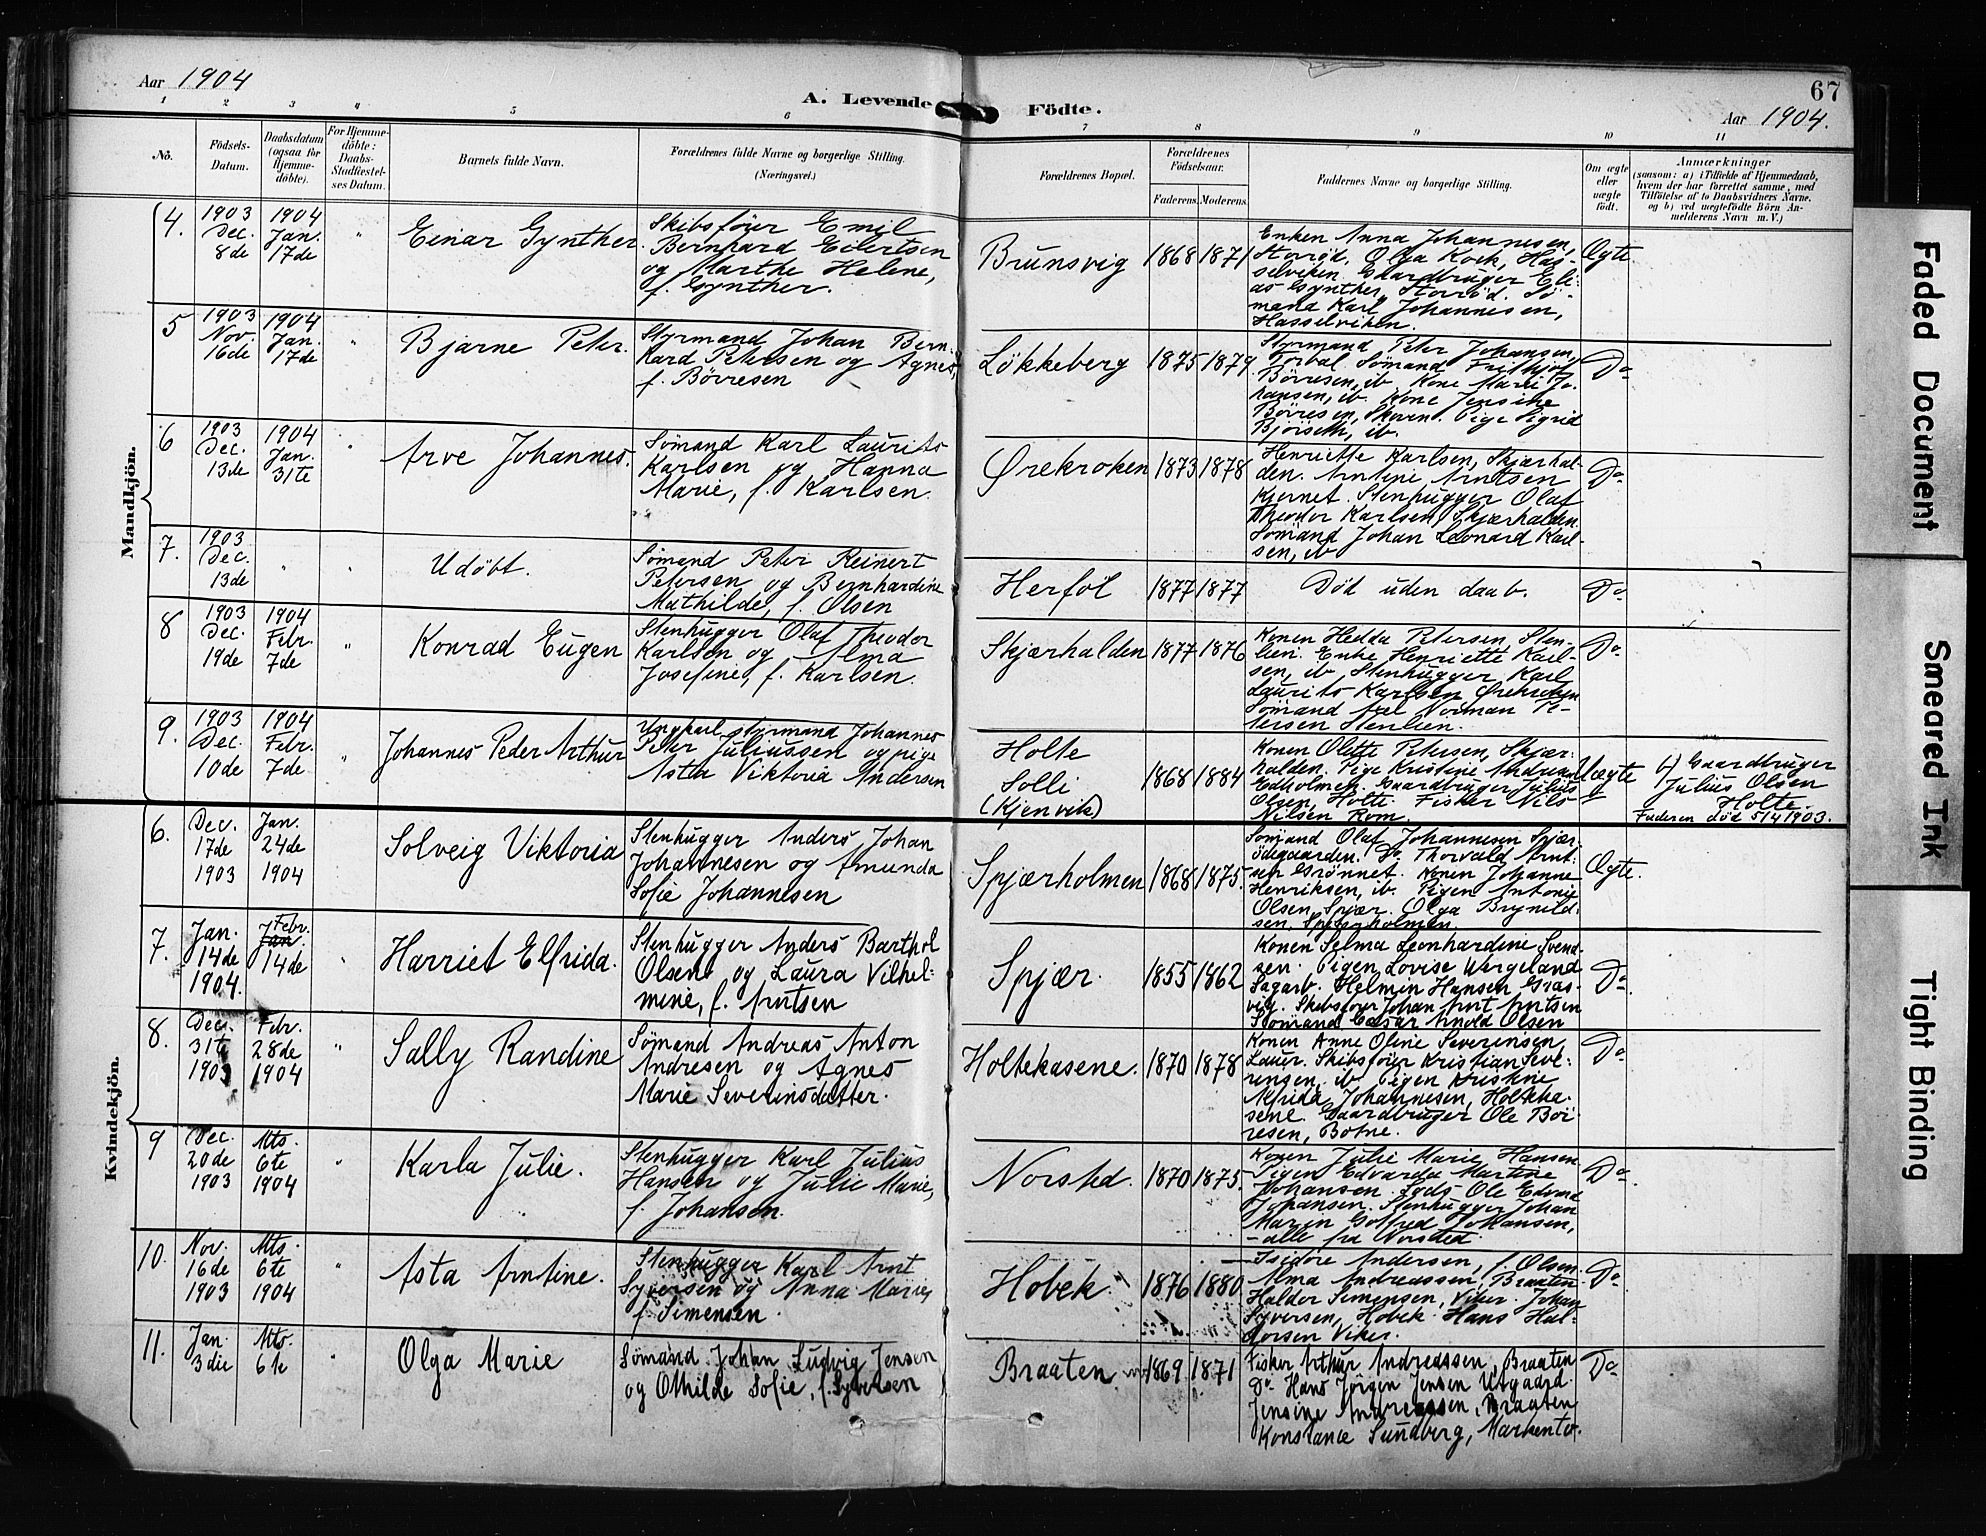 Aar 1904
A. Levende Födte.
67
Aar 1904.
1 2 3 4 5 6 7 8 9 10 11
No.
Födsels-
Datum.
Daabsdatum
(ogsaa for
Hjemme-
döbte).
For Hjemme-
döbte:
Daabs-
Stadfæstel-
ses Datum.
Barnets fulde Navn.
Forældrenes fulde Navne og borgerlige Stilling.
(Næringsvei.)
Forældrenes Bopæl.
Forældrenes
Födselsaar.
Faderens. Moderens.
Faddernes Navne og borgerlige Stilling.
Om ægte
eller
uægte
födt.
Anmærkninger
(saasom: a) i Tilfælde af Hjemmedaab,
hvem der har forrettet samme, med
Tilföielse af to Daabsvidners Navne,
og b) ved uægtefödte Börn An-
melderens Navn m. V.)
Mandkjön.
4.
1903
Dec.
8de
1904
Jan.
17de
"
Einar Gynther.
Skibsfører Emil
Bernhard Eilertsen
og Marthe Helene,
f. Gynther.
Brunsvig
1868 1871
Enken Anna Johannesen,
Storrød, Olga Koch, Has-
selviken. Gaardbruger Eli-
as Gynther, Storrød. Sø-
mand Karl Johannesen,
Hasselviken.
Ægte
5
1903
Nov.
16de
1904
Jan.
17de
"
Bjarne Peter.
Styrmand Johan Bern-
hard Petersen og Agnes,
f. Børresen
Løkkeberg
1875 1879
Styrmand Peter Johansen,
Torbal Sømand Fridhjof
Børresen, ib. Kone Marie Jo-
hansen, ib. Kone Jensine
Børresen, Skoren. Pige Sigrid
Bjørseth, ib.
Do
6
1903
Dec.
13de
1904
Jan.
31te
"
Arve Johannes.
Sømand Karl Laurits
Karlsen og Hanna
Marie, f. Karlsen.
Ørekroken
1873 1878
Henriette Karlsen, Skjærhal-
den. Arntine Arntsen
Kjernet. Stenhugger Olaf
Theodor Karlsen, Skjærhalden
Sømand Johan Leonard Karl-
sen, ib
Do
7.
1903
Dec.
13de
" " "
Udøbt.
Sømand Peter Reinert
Petersen og Bernhardine
Mathilde, f. Olsen
Herføl
1877 1877
Død uden daab.
Do
8
1903
Dec.
19de
1904
Febr.
7de
"
Konrad Eugen
Stenhugger Olaf Theodor
Karlsen og Alma
Josefine, f. Karlsen.
Skjærhalden
1877 1876
Konen Hedda Petersen, Sten-
lien. Enke Henriette Karl-
sen, ib. Stenhugger Karl
Laurits Karlsen Ørekroken
Sømand Axel Norman Pe-
tersen Stenlien.
Do
9.
1903
Dec.
10de
1904
Febr.
7de
"
Johannes Peder Arthur
Ungkarl styrmand Johannes
Peter Juliussen og pige
Asta Viktoria Andersen
Holte
Solli
(Kjenvik)
1868 1884
Konen Olette Petersen, Skjær-
halden, Pige Kristine Andersen
Edholmen. Gaardbruger Julius
Olsen, Holte. Fisker Nils
Nilsen Rom.
Uægte
b) Gaardbruger
Julius Olsen
Holte.
Faderen død 5/4 1903.
Kvindekjön.
6.
Dec.
17de
1903
Jan.
24de
1904
Solveig Viktoria
Stenhugger Anders Johan
Johannesen og Amunda
Sofie Johannesen
Spjærholmen
1868 1875.
Sømand Olaf Johannesen Spjær-
ødegaarden. Do Thorvald Arnt-
sen Grønnet. Konen Johanne
Henriksen, ib. Pigen Antonie
Olsen, Spjær. Olga Brynild-
sen, Spjærholmen.
Ægte.
7.
Jan.
14de
1904.
Febr.
14de
"
Harriet Elfrida.
Stenhugger Anders Barthol
Olsen og Laura Vilhel-
mine, f. Arntsen
Spjær.
1855 1862
Konen Selma Leonhardine Svend-
sen. Pigen Lovise Wergeland
Sagarb. Helmin Hansen Græs-
vig. Skibsfører Johan Arnt Arntsen
Sømand Cæsar Arnold Olsen
Do
8.
Dec.
31te
1903
Febr.
28de
1904
"
Sally Randine
Sømand Andreas Anton
Andresen og Agnes
Marie Severinsdatter.
Holtekasene.
1870 1878
Konen Anne Oline Severinsen
Lauer. Skibsfører Kristian Seve-
rinsen, ib. Pigen Kristine
Alfrida Johannesen, Holteka-
sene. Gaardbruger Ole Bør-
resen, Botne.
Do
9
Dec.
20de
1903
Mts.
6te
1904
"
Karla Julie.
Stenhugger Karl Julius
Hansen og Julie Marie,
f. Johansen.
Norsted.
1870 1875.
Konen Julie Marie Hansen
Pigen Edvarda Martine
Johansen. Lods Ole Edvard
Johansen. Stenhugger Johan
Marin Gotfred Johansen,
- alle fra Norsted.
Do
10.
Nov.
16de
1903
Mts.
6te
1904
"
Asta Arntine.
Stenhugger Karl Arnt
Syversen og Anna Marie,
f. Simensen.
Hobek.
1876 1880
Isidore Andersen, f. Olsen.
Alma Andreassen, Braaten
Haldor Simensen, Viker. Johan
Syversen, Hobek. Hans Hal-
dorsen Viker.
Do
11.
Jan.
3die
Mts.
6te
"
Olga Marie
Sømand Johan Ludvig Jensen
og Othilde Sofie, f. Syversen
Braaten
1869 1871
Fisker Arthur Andreassen, Braaten
Do Hans Jørgen Jensen Utgaard.
Jensine Andreassen, Braaten
Konstance Sundberg,
Do
Faded Document
Smeared Ink
Tight Binding